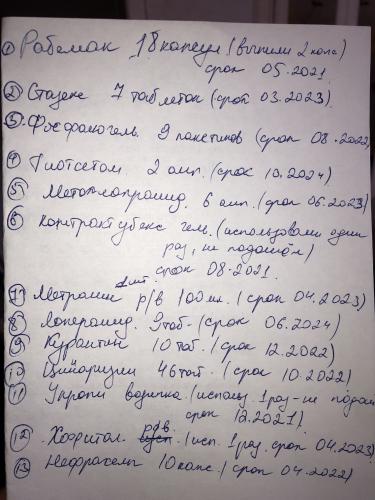 1) Рабемак 18 капсул (выпили 2 капс)
срок 05.2021
2) Стазекс 7 таблеток (срок 03.2023)
3. Фосфалюгель. 9 пакетиков (срок 08.2022)
4) Тиотсетам. 2 амп. (срок 10.2024)
5) Метоклопрамид. 6 амп. (срок 06.2023)
6) Контрактубекс гель. (использовали один
раз, не подошёл)
срок 08.2021.
7) Метрамин р/в 100 мл. (срок 04.2023)
8) Лоперамид. 9 таб. (срок 06.2024)
9) Курантил 10 таб. (срок 12.2022)
10) Циннаризин 46 таб. (срок 10.2022)
11) Укропн водичка (использ. 1 раз - не подош
срок 12.2021)
12) Хофитол. (исп. 1 раз. срок 04.2023)
13) Нефрокеа 10 капс. (срок 04.2022)